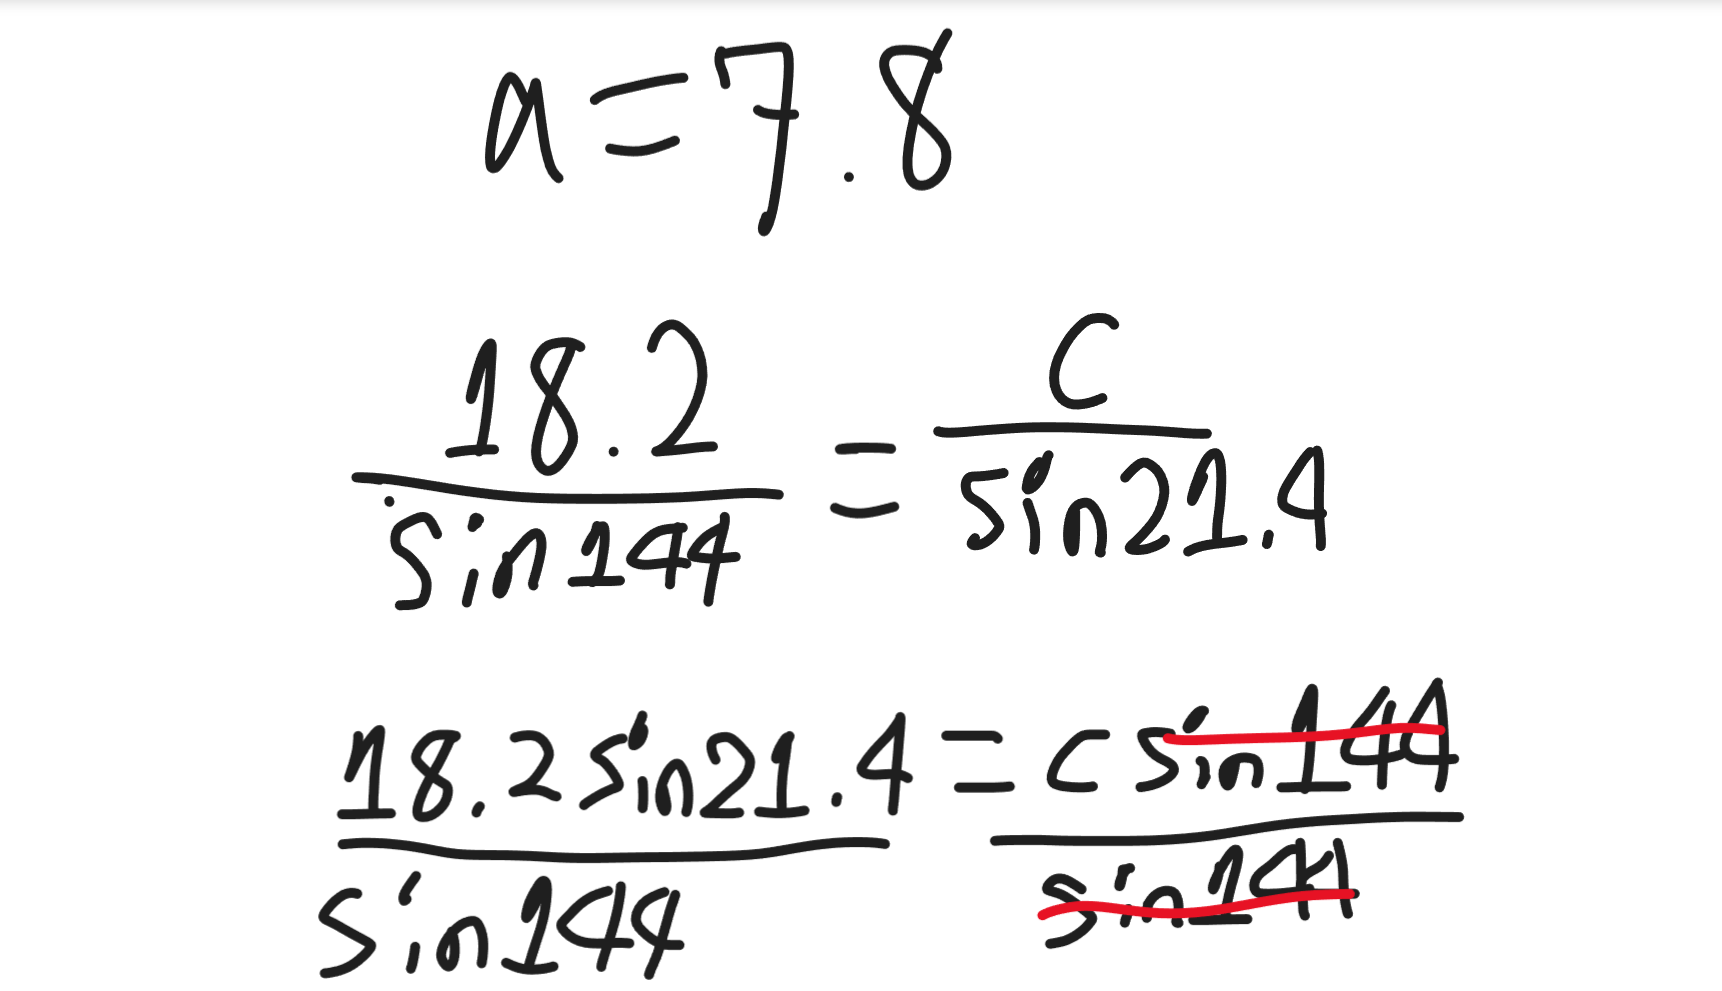 a=7.8
18.2/sin144 = c/sin21.4
18.2sin21.4/sin144 = csin144/sin144